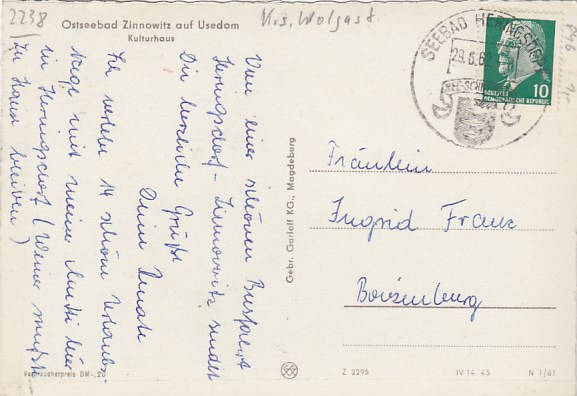 2238
Krs. Wolgast
Ostseebad Zinnowitz auf Usedom
Kulturhaus
Von einer schönen Busfahrt
Heringsdorf - Zinnowitz sendet
Dir herzliche Grüße
Deine Renate
Ich verlebe 14 schöne Urlaubs-
tage mit meiner Mutti hier
in Heringsdorf (Werner mußte
zu Hause bleiben)
Verbraucherpreis DM -,20
Gebr. Garloff KG., Magdeburg
SEEBAD HERINGSDORF
29.6.6
10
DEUTSCHE
DEMOKRATISCHE REPUBLIK
Fräulein
Ingrid Franz
Boizenburg
Z 2295
IV-14-45
N 1/61